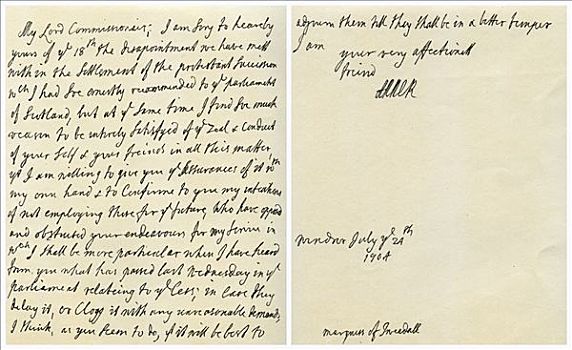 My Lord Commissioner, I am sory to hear by
yours of yᵉ 18ᵗʰ the disapointment we have mett
with in the Settlement of the protestant Succession
wᶜʰ I had soe earnestly recommended to yᵉ parliament
of Scotland, but at yᵉ same time I find soe much
reason to be intirely satisfyed of yᵉ Zeal & Conduct
of your self & your freinds in all this matter,
yᵗ I am willing to give you yᵉ assurances of it wᵗʰ
my own hand & to Confirme to you my intentions
of not employing those for yᵉ future, who have oposed
and obstructed your endeavours for my Service in
wᶜʰ I shall be more particular when I have heard
from you what has passed last Wednesday in yᵉ
parliament relating to yᵉ Cess; in case they
delay it, or Clogg it with any unreasonable demands,
I think, as you seem to do, yᵗ it will be best to
adjourn them till they shall be in a better temper
I am your very affectionett
freind
Windsor July yᵉ 24ᵗʰ
1704
marquess of Tweedall